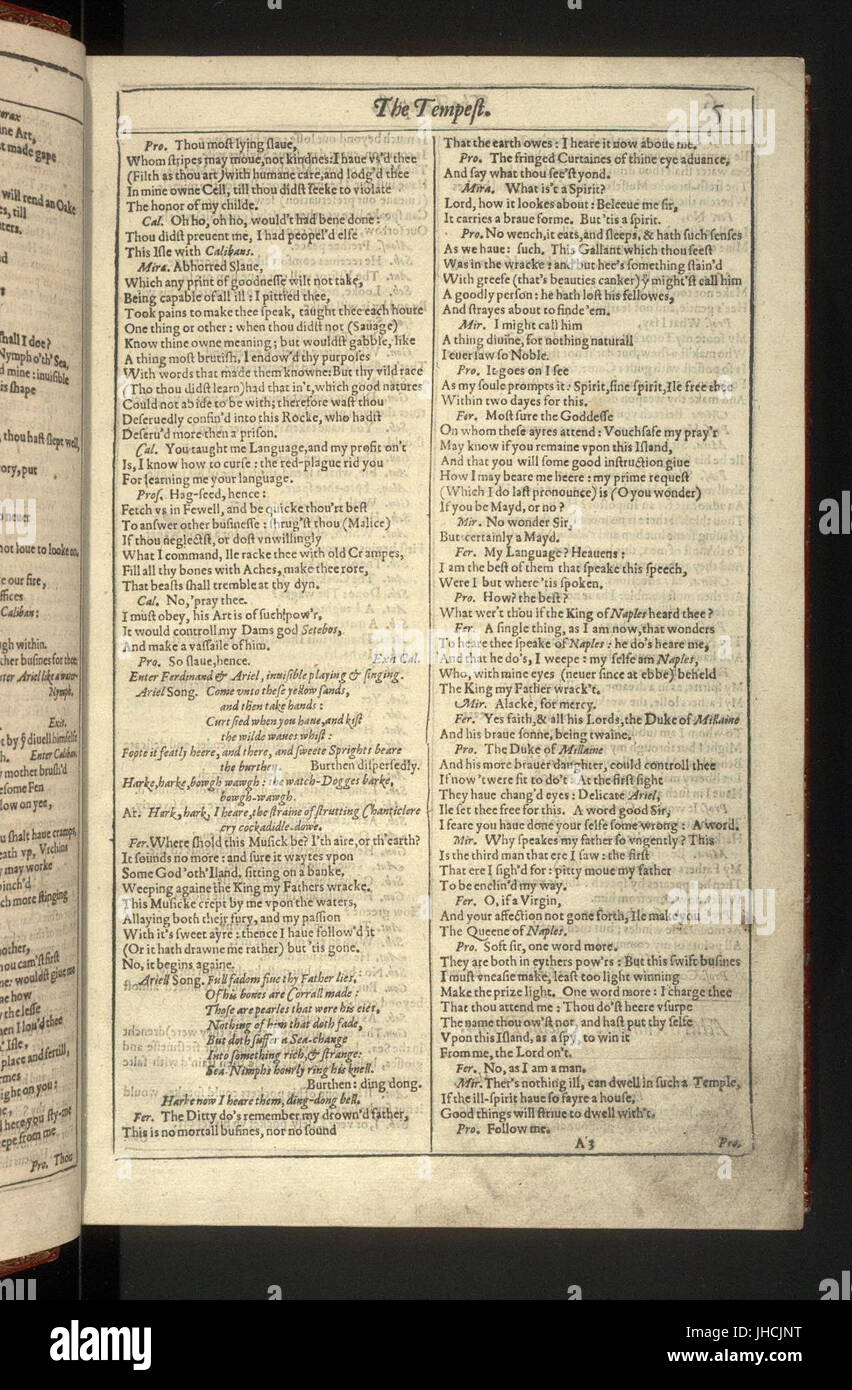 The Tempeſt.
5
Pro. Thou moſt lying ſlaue,
Whom ſtripes may moue, not kindnes: I haue vs'd thee
(Filth as thou art) with humane care, and lodg'd thee
In mine owne Cell, till thou didſt ſeeke to violate
The honor of my childe.
Cal. Oh ho, oh ho, would't had bene done:
Thou didſt preuent me, I had peopel'd elſe
This Iſle with Calibans.
Mira. Abhorred Slaue,
Which any print of goodneſſe wilt not take,
Being capable of all ill: I pittied thee,
Took pains to make thee ſpeak, taught thee each houre
One thing or other: when thou didſt not (Sauage)
Know thine owne meaning; but wouldſt gabble, like
A thing moſt brutiſh, I endow'd thy purpoſes
With words that made them knowne: But thy vild race
(Tho thou didſt learn) had that in't, which good natures
Could not abide to be with; therefore waſt thou
Deſeruedly confin'd into this Rocke, who hadſt
Deſeru'd more then a priſon.
Cal. You taught me Language, and my profit on't
Is, I know how to curſe: the red-plague rid you
For learning me your language.
Proſ. Hag-ſeed, hence:
Fetch vs in Fewell, and be quicke thou'rt beſt
To anſwer other buſineſſe: ſhrug'ſt thou (Malice)
If thou neglectſt, or doſt vnwillingly
What I command, Ile racke thee with old Crampes,
Fill all thy bones with Aches, make thee rore,
That beaſts ſhall tremble at thy dyn.
Cal. No, 'pray thee.
I muſt obey, his Art is of ſuch pow'r,
It would controll my Dams god Setebos,
And make a vaſſaile of him.
Pro. So ſlaue, hence. Exit Cal.
Enter Ferdinand & Ariel, inuiſible playing & ſinging.
Ariel Song. Come vnto theſe yellow ſands,
and then take hands:
Curtſied when you haue, and kiſt
the wilde waues whiſt:
Foote it featly heere, and there, and ſweete Sprights beare
the burthen. Burthen diſperſedly.
Harke, harke, bowgh wawgh: the watch-Dogges barke,
bowgh-wawgh.
Ar. Hark, hark, I heare, the ſtraine of ſtrutting Chanticlere
cry cockadidle-dowe.
Fer. Where ſhold this Muſick be? I'th aire, or th'earth?
It ſounds no more: and ſure it waytes vpon
Some God 'oth'Iland, ſitting on a banke,
Weeping againe the King my Fathers wracke.
This Muſicke crept by me vpon the waters,
Allaying both their fury, and my paſſion
With it's ſweet ayre: thence I haue follow'd it
(Or it hath drawne me rather) but 'tis gone.
No, it begins againe.
Ariell Song. Full fadom fiue thy Father lies,
Of his bones are Corrall made:
Thoſe are pearles that were his eies,
Nothing of him that doth fade,
But doth ſuffer a Sea-change
Into ſomething rich, & ſtrange:
Sea-Nimphs hourly ring his knell.
Burthen: ding dong.
Harke now I heare them, ding-dong bell.
Fer. The Ditty do's remember my drown'd father,
This is no mortall buſines, nor no ſound
That the earth owes: I heare it now aboue me.
Pro. The fringed Curtaines of thine eye aduance,
And ſay what thou ſee'ſt yond.
Mira. What is't a Spirit?
Lord, how it lookes about: Beleeue me ſir,
It carries a braue forme. But 'tis a ſpirit.
Pro. No wench, it eats, and ſleeps, & hath ſuch ſenſes
As we haue: ſuch. This Gallant which thou ſeeſt
Was in the wracke: and but hee's ſomething ſtain'd
With greefe (that's beauties canker) ỹ might'ſt call him
A goodly perſon: he hath loſt his fellowes,
And ſtrayes about to finde 'em.
Mir. I might call him
A thing diuine, for nothing naturall
I euer ſaw ſo Noble.
Pro. It goes on I ſee
As my ſoule prompts it: Spirit, fine ſpirit, Ile free thee
Within two dayes for this.
Fer. Moſt ſure the Goddeſſe
On whom theſe ayres attend: Vouchſafe my pray'r
May know if you remaine vpon this Iſland,
And that you will ſome good inſtruction giue
How I may beare me heere: my prime requeſt
(Which I do laſt pronounce) is (O you wonder)
If you be Mayd, or no?
Mir. No wonder Sir,
But certainly a Mayd.
Fer. My Language? Heauens:
I am the beſt of them that ſpeake this ſpeech,
Were I but where 'tis ſpoken.
Pro. How? the beſt?
What wer't thou if the King of Naples heard thee?
Fer. A ſingle thing, as I am now, that wonders
To heare thee ſpeake of Naples: he do's heare me,
And that he do's, I weepe: my ſelfe am Naples,
Who, with mine eyes (neuer ſince at ebbe) beheld
The King my Father wrack't.
Mir. Alacke, for mercy.
Fer. Yes faith, & all his Lords, the Duke of Millaine
And his braue ſonne, being twaine.
Pro. The Duke of Millaine
And his more brauer daughter, could controll thee
If now 'twere fit to do't: At the firſt ſight
They haue chang'd eyes: Delicate Ariel,
Ile ſet thee free for this. A word good Sir,
I feare you haue done your ſelfe ſome wrong: A word.
Mir. Why ſpeakes my father ſo vngently? This
Is the third man that ere I ſaw: the firſt
That ere I ſigh'd for: pitty moue my father
To be enclin'd my way.
Fer. O, if a Virgin,
And your affection not gone forth, Ile make you
The Queene of Naples.
Pro. Soft ſir, one word more.
They are both in eythers pow'rs: But this ſwift buſines
I muſt vneaſie make, leaſt too light winning
Make the prize light. One word more: I charge thee
That thou attend me: Thou do'ſt heere vſurpe
The name thou ow'ſt not, and haſt put thy ſelfe
Vpon this Iſland, as a ſpy, to win it
From me, the Lord on't.
Fer. No, as I am a man.
Mir. Ther's nothing ill, can dwell in ſuch a Temple,
If the ill-ſpirit haue ſo fayre a houſe,
Good things will ſtriue to dwell with't.
Pro. Follow me.
A3 Pro.
alamy
Image ID: JHCJNT
www.alamy.com